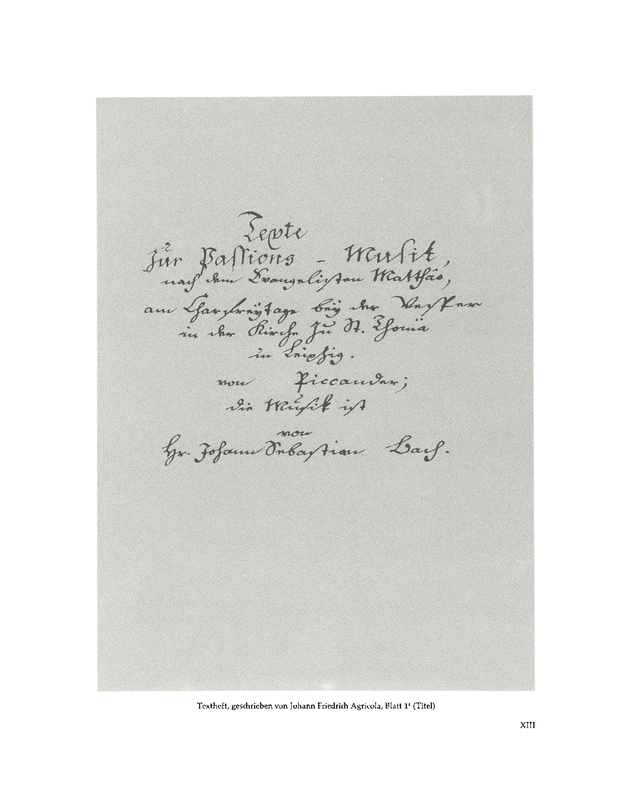 Texte
zur Passions - Musik,
nach dem Evangelisten Matthäo,
am Charfreytage bey der Vesper
in der Kirche zu St. Thomä
in Leipzig.
von Piccander;
die Musik ist
von
Hr. Johann Sebastian Bach.
Textheft, geschrieben von Johann Friedrich Agricola, Blatt 1r (Titel)
XIII